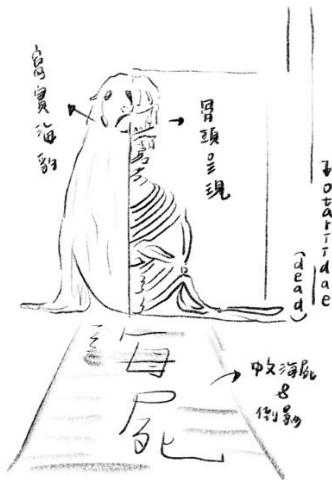 寫實海豹
骨頭呈現
Otariidae
(dead)
海屍
海屍
&
倒影